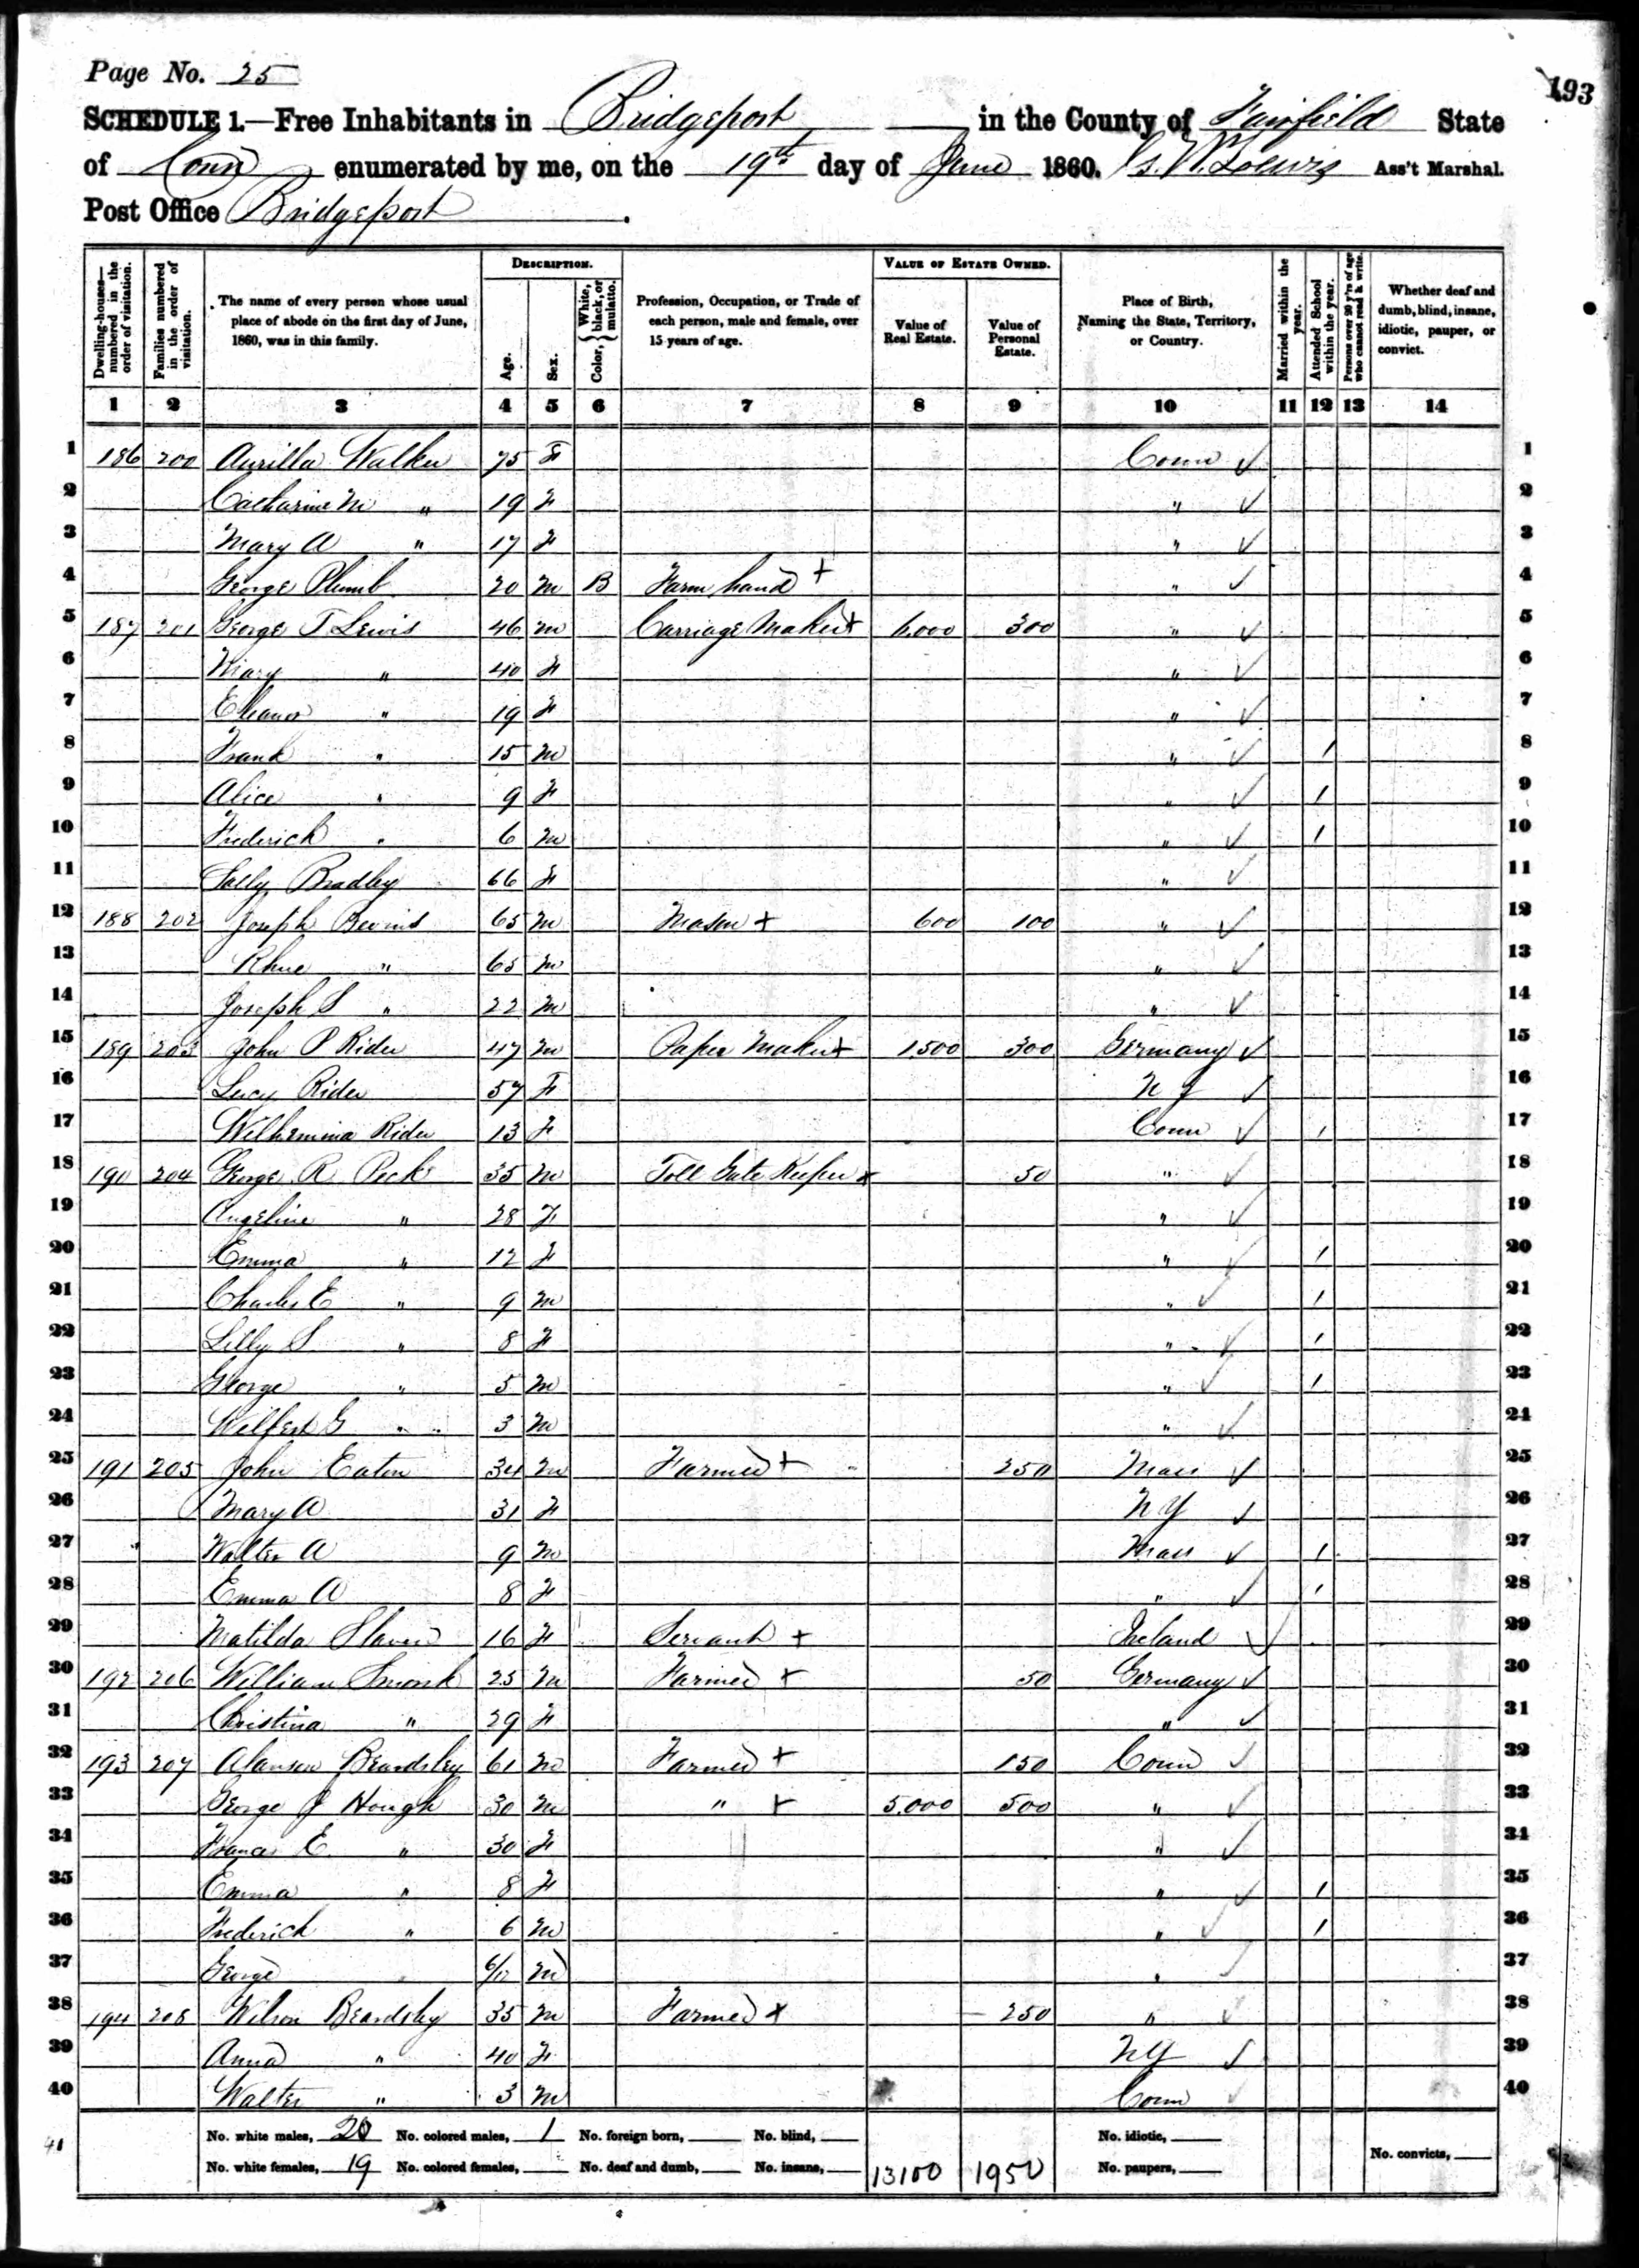 Page No. 25
193
SCHEDULE 1.—Free Inhabitants in Bridgeport in the County of Fairfield State
of Conn enumerated by me, on the 19th day of June 1860. Lewis Ass't Marshal.
Post Office Bridgeport.
Dwelling-houses—numbered in the order of visitation.
Families numbered in the order of visitation.
The name of every person whose usual place of abode on the first day of June, 1860, was in this family.
DESCRIPTION.
Age.
Sex.
Color, { White, black, or mulatto.
Profession, Occupation, or Trade of each person, male and female, over 15 years of age.
VALUE OF ESTATE OWNED.
Value of Real Estate.
Value of Personal Estate.
Place of Birth, Naming the State, Territory, or Country.
Married within the year.
Attended School within the year.
Persons over 20 y'rs of age who cannot read & write.
Whether deaf and dumb, blind, insane, idiotic, pauper, or convict.
1 2 3 4 5 6 7 8 9 10 11 12 13 14
1 186 200 Aurilla Walker 75 F Conn ✓ 1
2 Catharine M " 19 F " ✓ 2
3 Mary A " 17 F " ✓ 3
4 George Plumb 20 M B Farm hand + " ✓ 4
5 187 201 George T Lewis 46 M Carriage Maker + 6,000 300 " ✓ 5
6 Mary " 40 F " ✓ 6
7 Eleanor " 19 F " ✓ 7
8 Frank " 15 M " ✓ / 8
9 Alice " 9 F " ✓ / 9
10 Frederick " 6 M " ✓ / 10
11 Sally Bradley 66 F " ✓ 11
12 188 202 Joseph Bevins 65 M Mason + 600 100 " ✓ 12
13 Rhue " 65 M " ✓ 13
14 Joseph S " 22 M " ✓ 14
15 189 203 John P Rider 47 M Paper Maker + 1,500 300 Germany ✓ 15
16 Lucy Rider 57 F N J ✓ 16
17 Wilhemina Rider 13 F Conn ✓ / 17
18 190 204 George R Peck 35 M Toll Gate Keeper x 50 " ✓ 18
19 Angeline " 28 F " ✓ 19
20 Emma " 12 F " ✓ / 20
21 Charles E " 9 M " ✓ / 21
22 Lilly S " 8 F " ✓ / 22
23 George " 5 M " ✓ / 23
24 G " 3 M " ✓ 24
25 191 205 John Eaton 34 M Farmer + 250 Mass ✓ 25
26 Mary A 31 F N Y ✓ 26
27 Walter A 9 M Mass ✓ / 27
28 Emma A 8 F " ✓ / 28
29 Matilda Slaven 16 F Servant + Ireland ✓ 29
30 192 206 William Smonk 25 M Farmer + 50 Germany ✓ 30
31 Christina " 29 F " ✓ 31
32 193 207 Alanson Beardsley 61 M Farmer + 150 Conn ✓ 32
33 George J Hough 30 M " + 5,000 500 " ✓ 33
34 Frances E " 30 F " ✓ 34
35 Emma " 8 F " ✓ / 35
36 Frederick " 6 M " ✓ / 36
37 George " 6/12 M " ✓ 37
38 194 208 Wilson Beardsley 35 M Farmer x 250 " ✓ 38
39 Anna " 40 F N Y ✓ 39
40 Walter " 3 M Conn ✓ 40
41 No. white males, 20 No. colored males, 1 No. foreign born, No. blind, No. idiotic,
No. white females, 19 No. colored females, No. deaf and dumb, No. insane, 13100 1950 No. paupers, No. convicts,